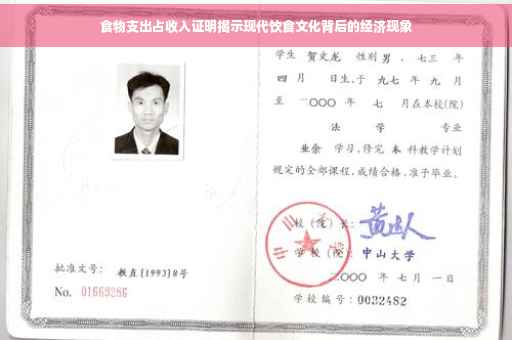 食物支出占收入证明揭示现代饮食文化背后的经济现象
学生 贺文龙 性别 男 、七三 年
四 月 日生,于 九七 年 九 月
至 二〇〇〇 年 七 月在本校(院)
法 学 专业
业余 学习,修完 本 科教学计划
规定的全部课程,成绩合格,准予毕业。
校(院)长:
学校(院): 中山大学
二〇〇〇 年 七 月 一 日
批准文号: 教直[1993]8号
No. 01669286
学校编号: 0032482